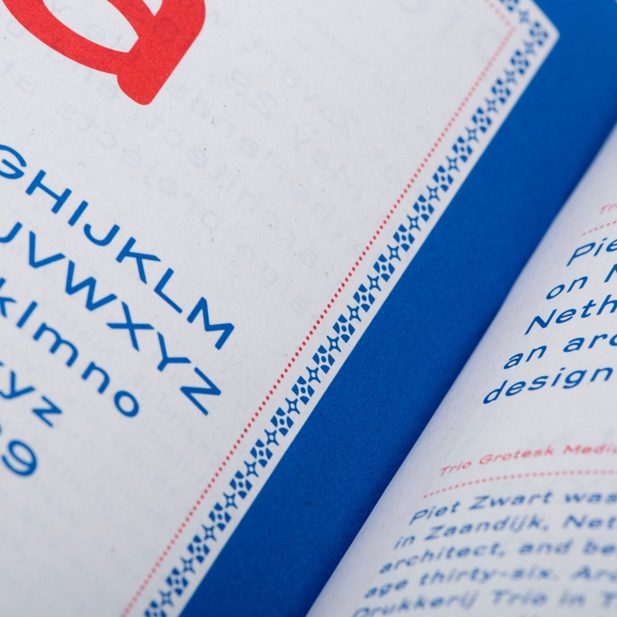 a
GHIJKLM
UVWXYZ
klmno
xyz
89
Pie
on N
Neth
an arc
design
Trio Grotesk Mediu
Piet Zwart was
in Zaandijk, Net
architect, and be
age thirty-six. Arc
Drukkerij Trio in T